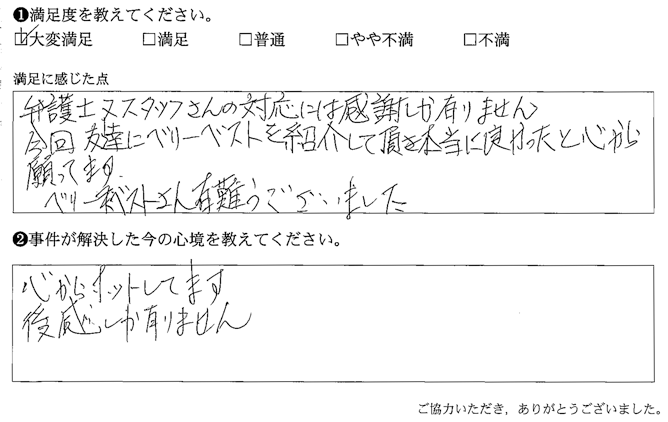 ❶満足度を教えてください。
☑大変満足 □満足 □普通 □やや不満 □不満
満足に感じた点
弁護士又スタッフさんの対応には感謝しか有りません
今回友達にベリーベストを紹介して頂き本当に良かったと心から
願ってます.
ベリーベストさん有難うございました
❷事件が解決した今の心境を教えてください。
心からホットしてます
感しか有りません
ご協力いただき，ありがとうございました。